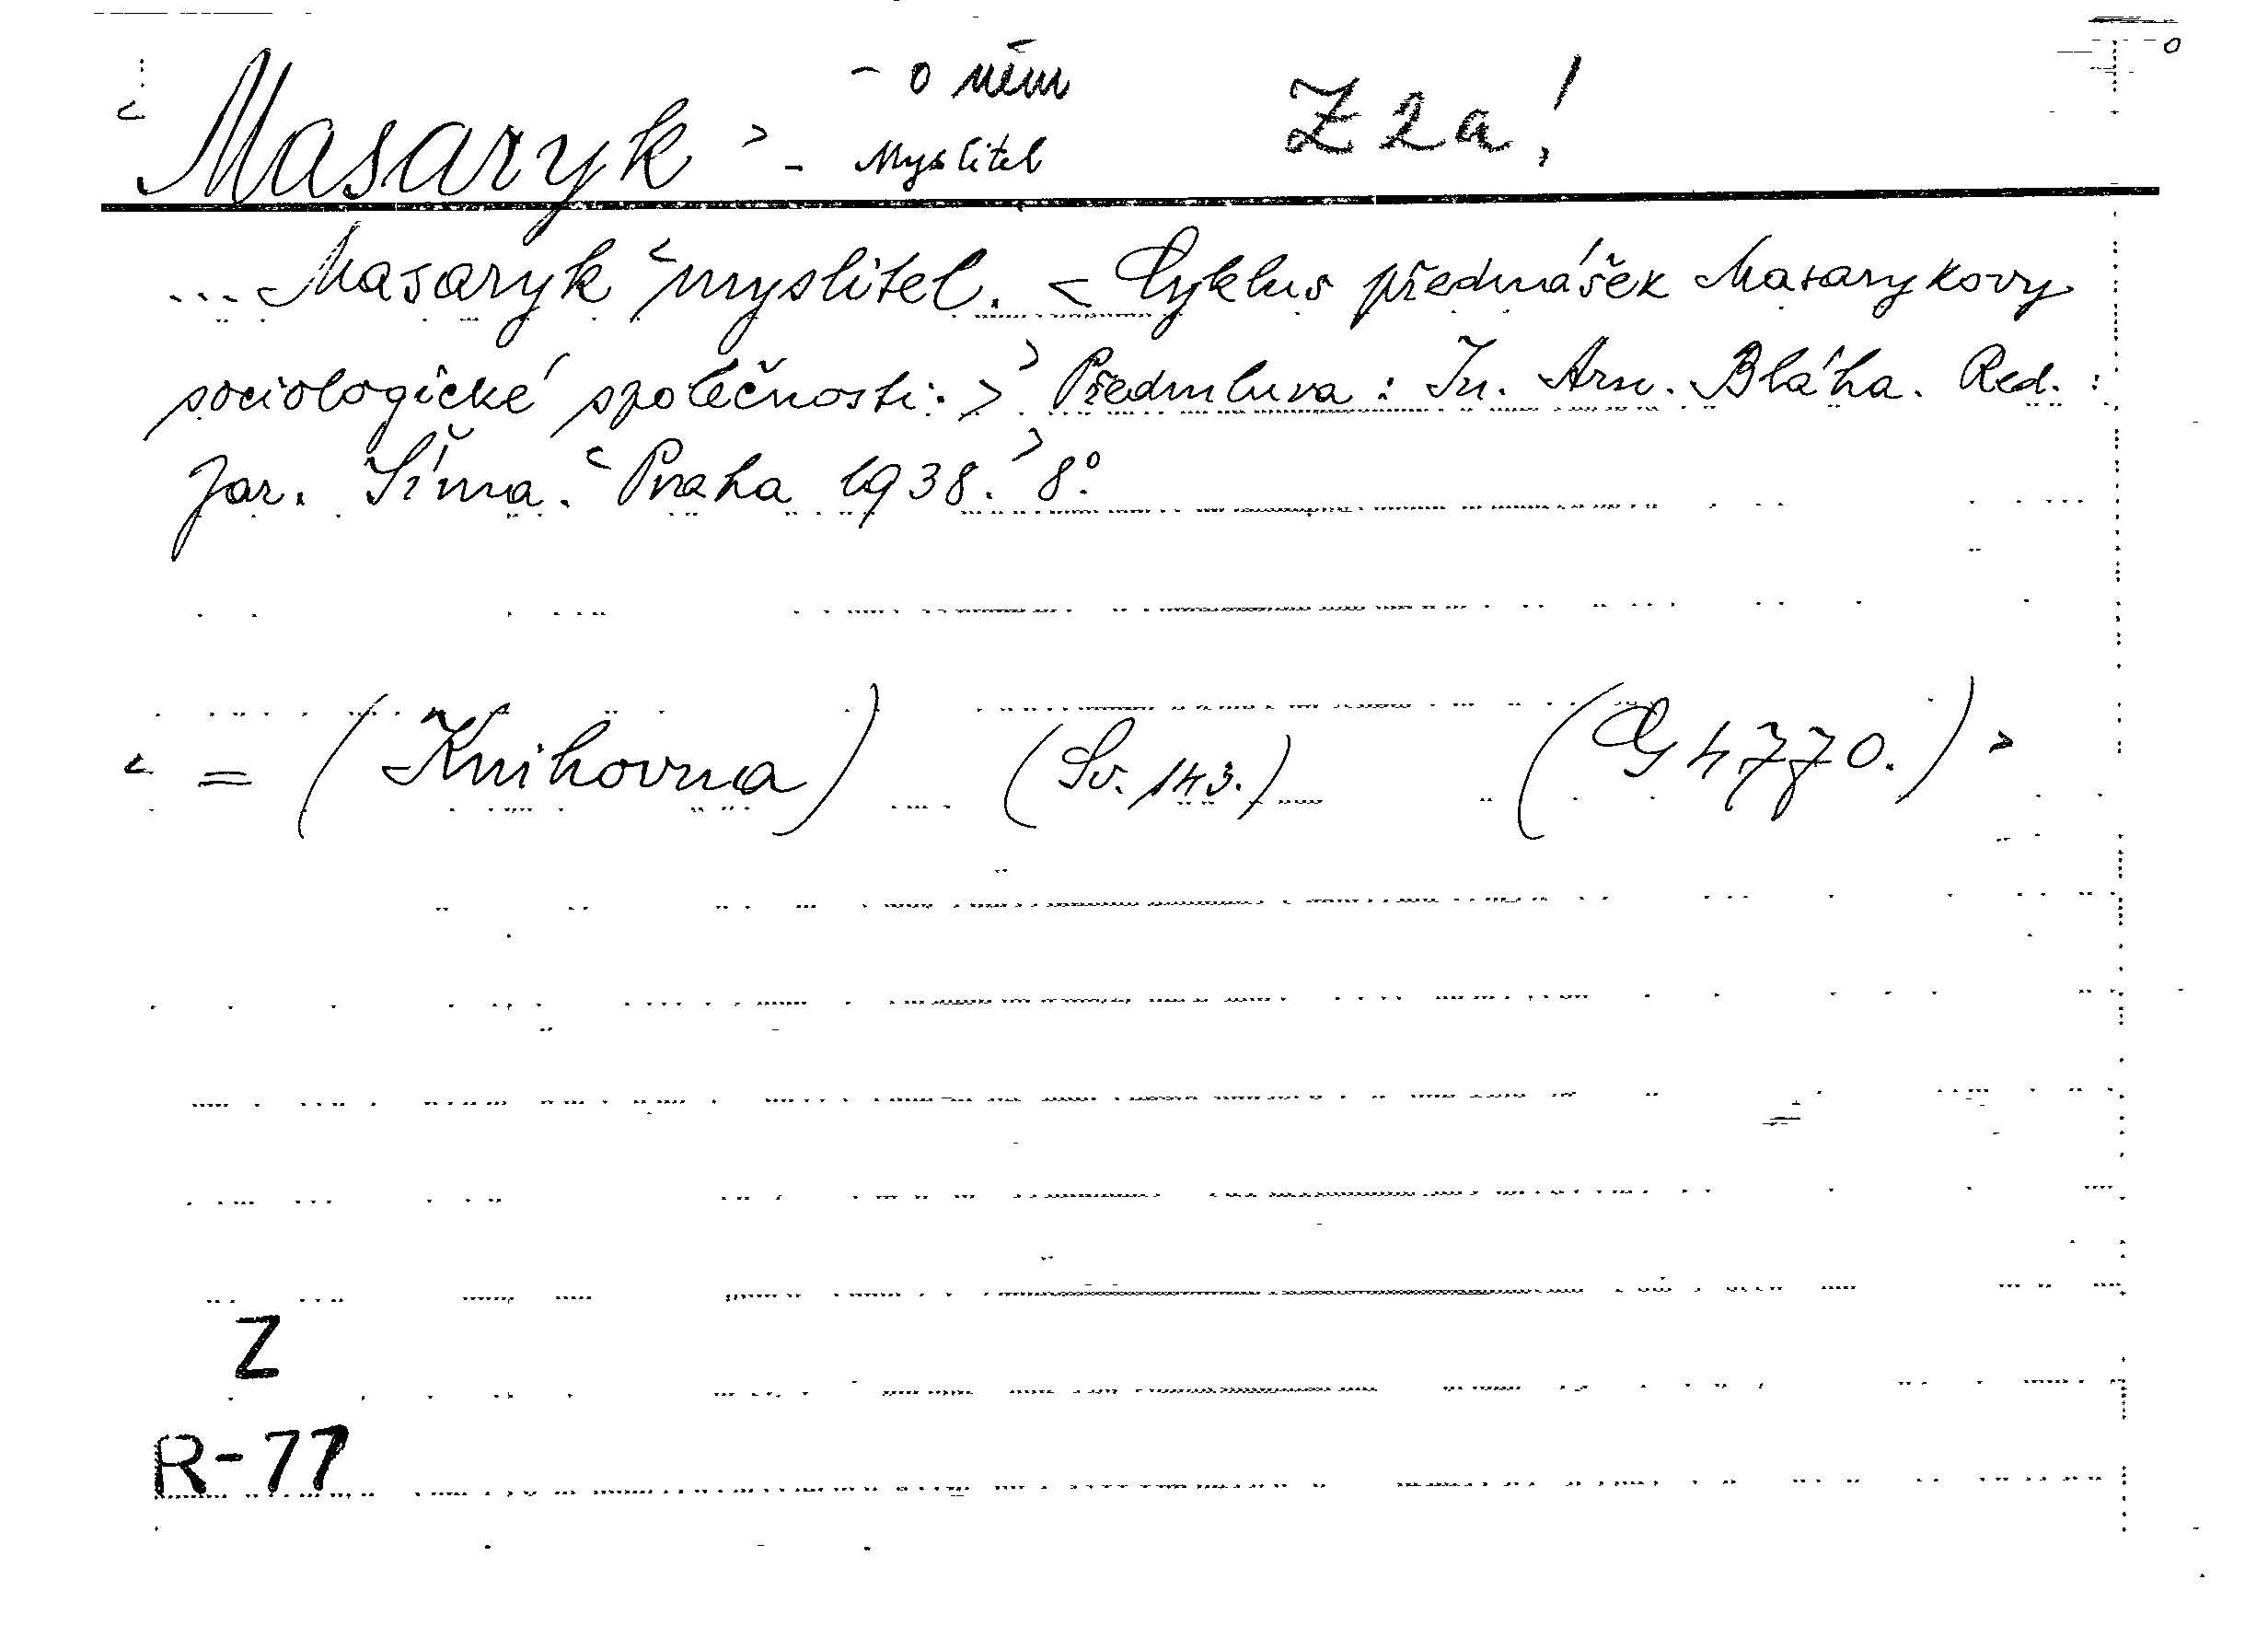 - o něm
< Masaryk > - Myslitel Z2a!
... Masaryk < myslitel. < Cyklus přednášek Masarykovy
sociologické společnosti. > > Předmluva: In. Arn. Bláha. Red.:
Jar. Šíma. < Praha 1938. > 8°.
< = (Knihovna) (Sv. 143.) (G 4770.) >
Z
R-77